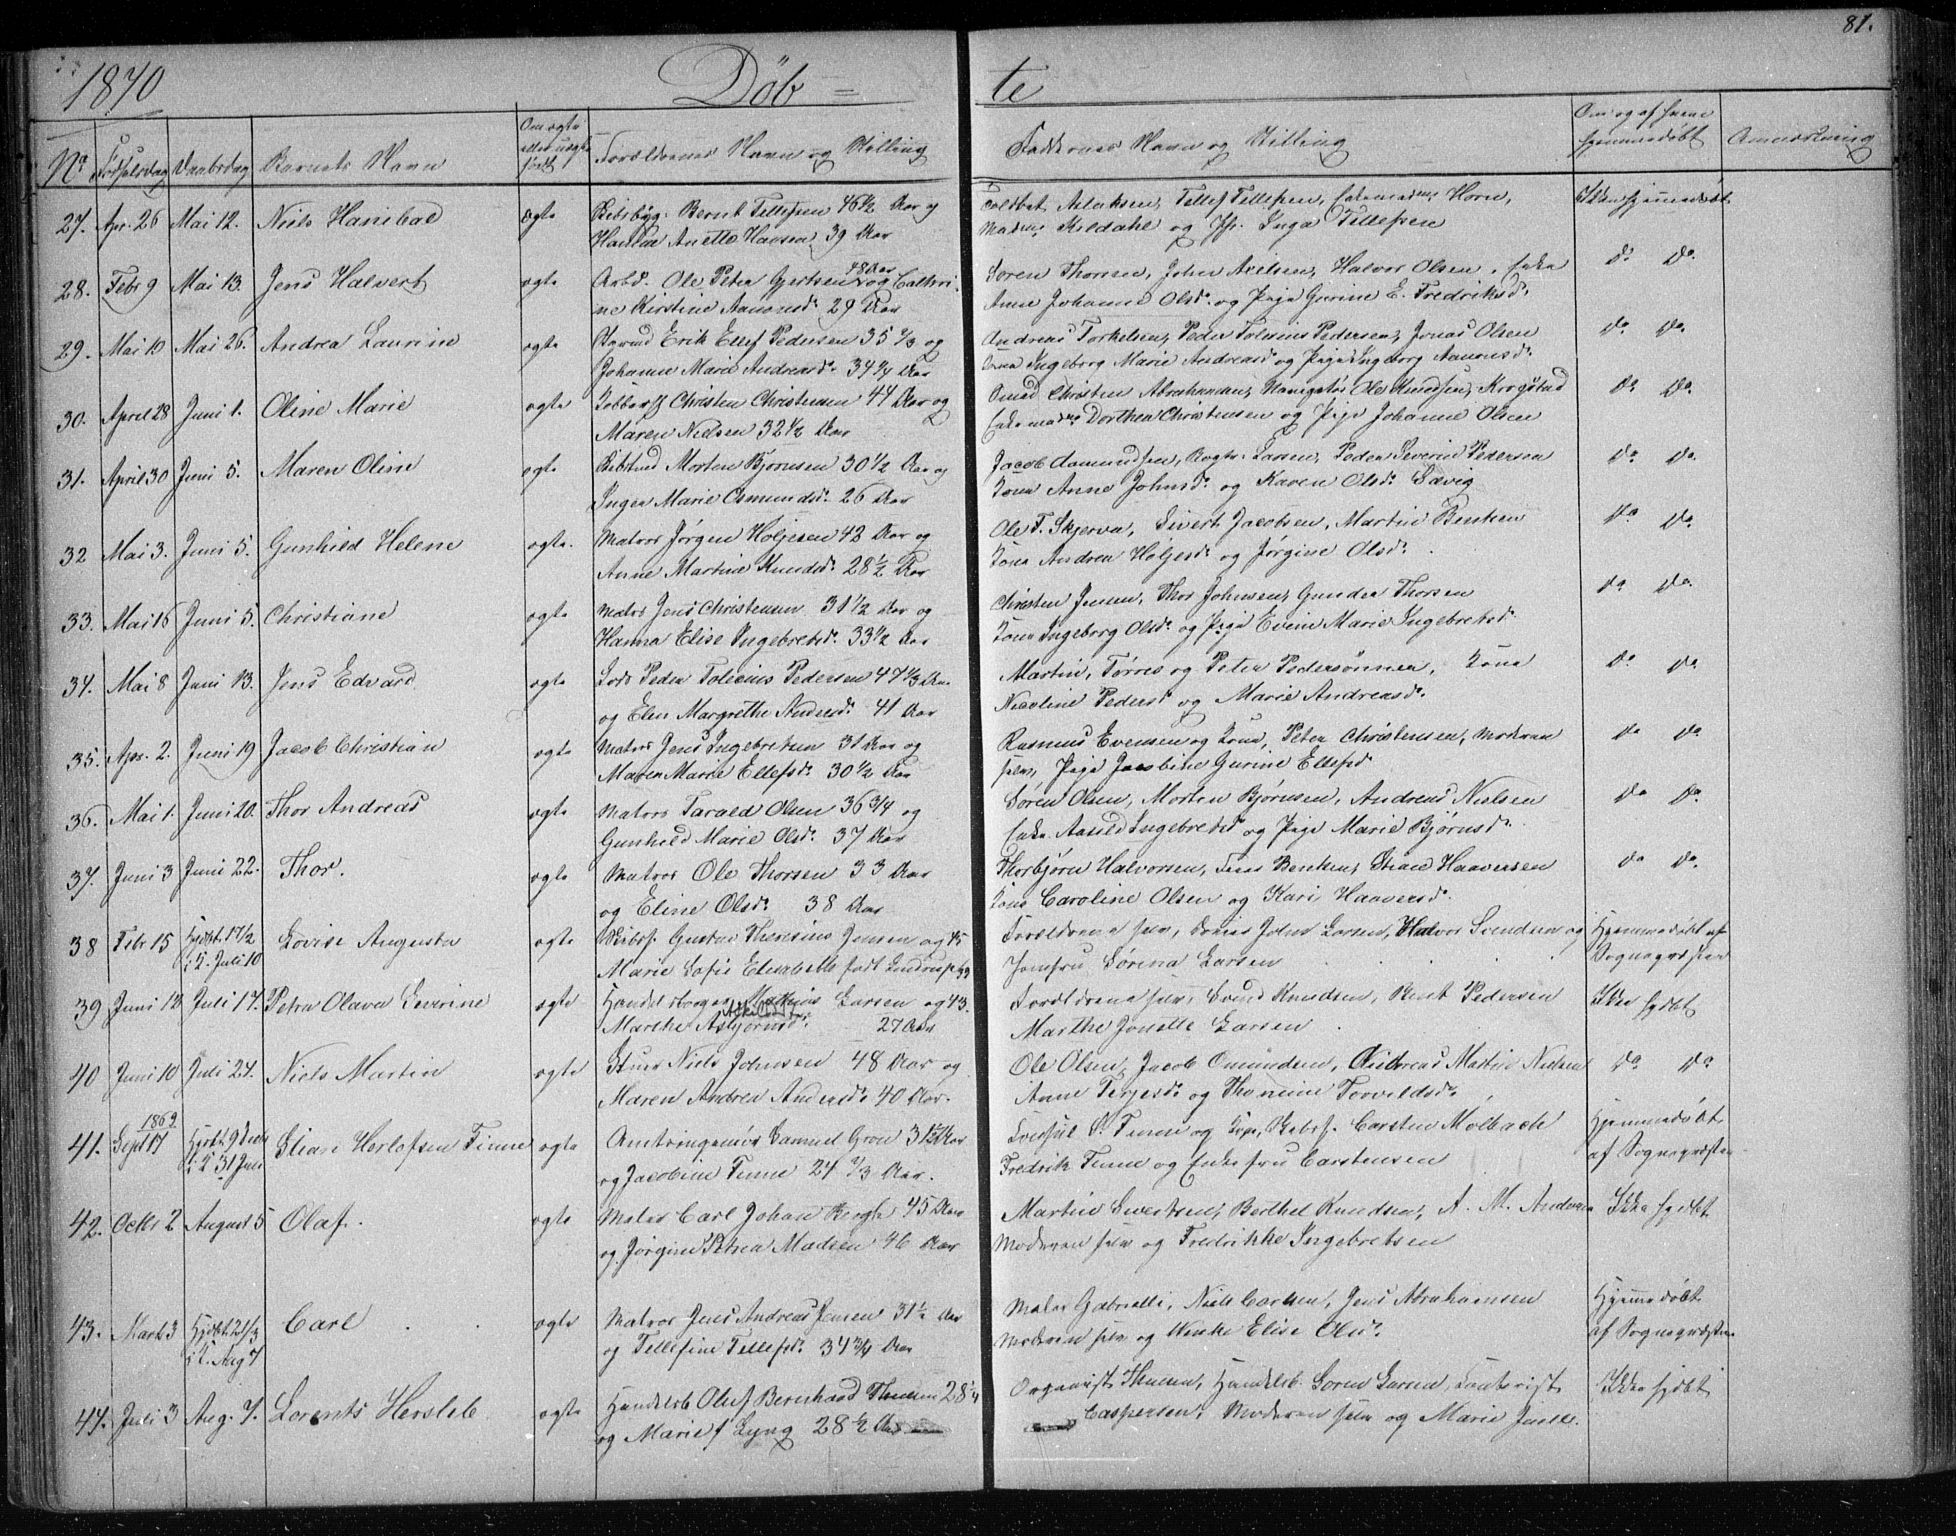 81.
1870 Døb = te
No Fødselsdag Daabsdag Barnets Navn Om ægte eller uægte født Forældrenes Navn og Stilling Faddernes Navn og Stilling Om og af hvem hjemmedøbt Anmærkning
27. Apr. 26 Mai 12. Niels Hanibal ægte Skibsbyg. Bernt Tellefsen 46½ Aar og Tellef Tellefsen, Enkemadme Horn, Ikke hjemmedøbt
Anette Hansen 39 Aar Madme Kildahl og Inga Tellefsen
28. Febr 9 Mai 13. Jens Halvert ægte Arbd. Ole Peter Gertsen 48 Aar og Cathri- Søren Thorsen, John Axelsen, Halvor Olsen, Enke do do
ne Kirstine Aanonsdr 29 Aar Anne Johanne Olsdr og Pige Gurine E. Fredriksdr
29. Mai 10 Mai 26. Andrea Laurin ægte Erik Ellef Pedersen 35 2/3 og Andreas Torkelsen, Peder Tolecius Pedersen, Jonas Olsen do do
Johanne Marie Andreasdr 34 Aar Kone Ingeborg Marie Andreasdr og Pige Ingeborg Aanonsdr
30. April 28 Juni 1. Oline Marie ægte Christen Christensen 44 Aar og Smed Christen Abrahamsen, Navigatør Ole Knudsen, Krogstad do do
Maren Nielsen 32½ Aar Enkemadme Dorthea Christensen og Pige Johanne Olsen
31. April 30 Juni 5. Maren Oline ægte Morten Bjørnsen 30½ Aar og Jacob Aamundsen, Larsen, Peder Severin Pedersen do do
Inger Marie Osmundsdr 26 Aar Kone Anne Johnsdr og Karen Olsdr Sævig
32 Mai 3. Juni 5. Gunhild Helene ægte. Matros Jørgen Høljesen 42 Aar og Ole T. Skjerva, Sivert Jacobsen, Martin Bentsen do do
Anne Martine Knudsdr 28½ Aar Kone Andrea Høljesdr og Jørgine Olsdr
33. Mai 16 Juni 5. Christiane ægte Matros Jens Christensen 31½ Aar og Christen Jensen, Thor Johnsen, Gunder Thorsen do do
Hanna Elise Ingebretsdr 33½ Aar Kone Ingeborg Olsdr og Pige Evine Marie Ingebretsdr
34. Mai 8 Juni 13. Jens Edvard ægte Lods Peder Tolecius Pedersen 47 1/3 Aar Martin, Tørres og Peter Pedersønner, Kone do do
og Elen Margrethe Andersdr 41 Aar Nicoline Pedersdr og Marie Andreasdr
35. Apr. 2. Juni 19 Jacob Christian ægte Matros Jens Ingebretsen 31 Aar og Rasmus Evensen og Kone, Peter Christensen, Moderen do do
Maren Marie Ellefsdr 30½ Aar selv, Pige Jacobine Gurine Ellefsd
36. Mai 1. Juni 20. Thor Andreas ægte Matros Tarald Olsen 36 3/4 og Søren Olsen, Morten Bjørnsen, Andreas Nielsen do do
Gunhild Marie Olsdr 37 Aar Enke Aasild Ingebretsd og Pige Marie Bjørnsdr
37. Juni 3 Juni 22. Thor. ægte Matros Ole Thorsen 33 Aar Thorbjørn Halvorsen, Jens Bentsen, Stian Haaversen do do
og Eline Olsdr 38 Aar Kone Caroline Olsen og Kari Haaversd.
38 Febr 15 Hjdbt 17/2 i K. Juli 10 Lovise Augusta ægte Skibsf. Gustav Theresius Jensen og 45 Forældrene selv, John Larsen, Halvor Svendsen og Hjemmedøbt af
Marie Sofie Elisabeth født Jomfru Sørina Larsen Sognepræsten
39 Juni 12 Juli 17. Petra Olava Severine ægte Handelsborger Mathias Larsen og 43. Forældrene selv, Svend Knudsen, Bent Pedersen Ikke hjdbt
Marthe Asbjørnsdr 27 Aar Marthe Jonette Larsen
40 Juni 10 Juli 24. Niels Martin ægte Stuer Niels Johnsen 48 Aar og Ole Olsen, Jacob Omundsen, Andreas Martin Nielsen do do
Maren Andrea Andersdr 40 Aar. Anne Terjesdr og Thomine Torvildsdr
41. 1869 Sept 17 Hjdbt 9 i K 31 Juli Stian Herlofsen Finne ægte Amtsingeniør Samuel Gron 31 Aar S. Finne og Kone, Skibsf. Carsten Molbach Hjemmedøbt
og Jacobine Finne 24 2/3 Aar. Fredrik Finne og Enkefru Carstensen af Sognepræsten
42. Octbr 2 August 5 Olaf. ægte Maler Carl Johan Bergh 45 Aar Martin Sivertsen, Berthel Knudsen, A. M. Andersen Ikke hjdbt
og Jørgine Petrea Madsen 46 Aar Moderen selv og Fredrikke Ingebretsen
43. Marts 3 Hjdbt 21/3 i K. Aug 7 Carl ægte Matros Jens Andreas Jensen 31½ Aar Maler Gabrielli, Niels Carlsen, Jens Abrahamsen Hjemmedøbt
og Tellefine Tellefsdr 34 3/4 Aar Moderen selv og Elise Olsdr af Sognepræsten
44. Juli 3 Aug. 7. Lorents Hersleb ægte Handelsb Oluf Bernhard Thuesen 28 Organist Thuesen, Handelsb. Søren Larsen, Kontorist Ikke hjdbt
og Marie f Lyng 28½ Aar Caspersen, Moderen selv og Marie Juell.